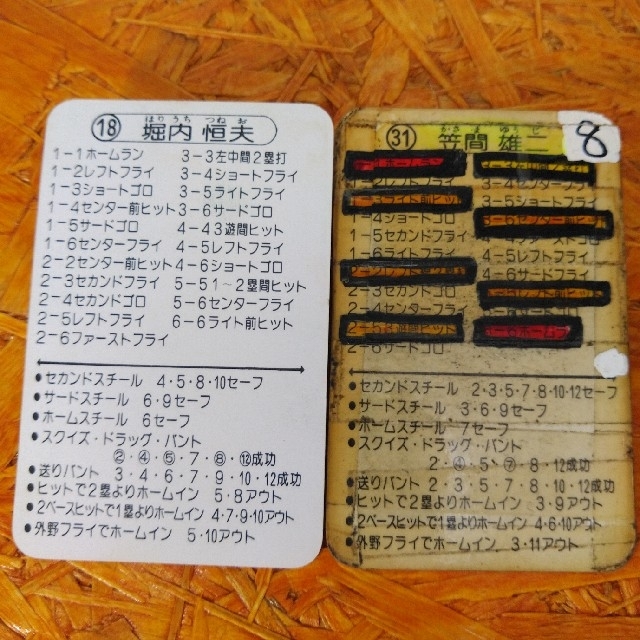 ほりうち つねお
⑱ 堀内 恒夫
1-1ホームラン 3-3左中間2塁打
1-2レフトフライ 3-4ショートフライ
1-3ショートゴロ 3-5ライトフライ
1-4センター前ヒット 3-6サードゴロ
1-5サードゴロ 4-43遊間ヒット
1-6センターフライ 4-5レフトフライ
2-2センター前ヒット 4-6ショートゴロ
2-3セカンドフライ 5-51~2塁間ヒット
2-4セカンドゴロ 5-6センターフライ
2-5レフトフライ 6-6ライト前ヒット
2-6ファーストフライ
●セカンドスチール 4・5・8・10セーフ
●サードスチール 6・9セーフ
●ホームスチール 6セーフ
●スクイズ・ドラッグ・バント
②・④・⑤・7・⑧・⑫成功
●送りバント 3・4・6・7・9・10・12成功
●ヒットで2塁よりホームイン 5・8アウト
●2ベースヒットで1塁よりホームイン 4・7・9・10アウト
●外野フライでホームイン 5・10アウト
㉛ 笠間 雄二
8
3-4センターフライ
3-5ショートフライ
1-4ショートゴロ
1-5セカンドフライ
1-6ライトフライ 4-5レフトフライ
4-6サードゴロ
2-3セカンドゴロ
2-6サードゴロ
●セカンドスチール 2・3・5・7・8・10・12セーフ
●サードスチール 3・6・9セーフ
●ホームスチール 7セーフ
●スクイズ・ドラッグ・バント
2・④・5・⑦・8・12成功
●送りバント 2・3・5・7・8・10・12成功
●ヒットで2塁よりホームイン 3・9アウト
●2ベースヒットで1塁よりホームイン 4・6・10アウト
●外野フライでホームイン 3・11アウト